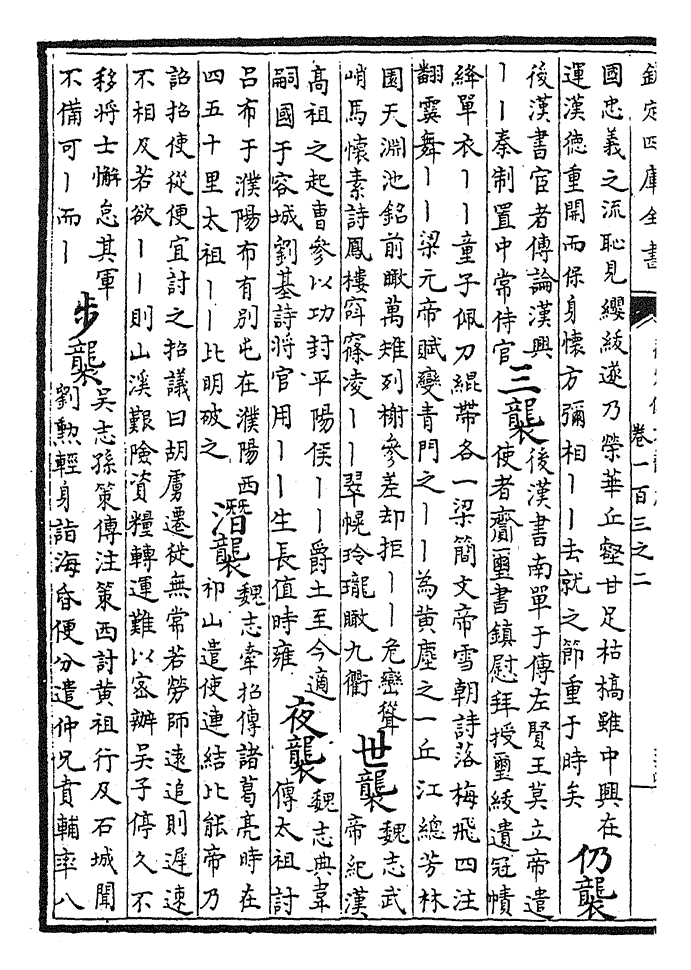 欽定四庫全書
卷一百三之二
國忠義之流恥見纓紱遂乃榮華丘壑甘足枯槁雖中興在
運漢德重開而保身懷方彌相丨丨去就之節重于時矣
仍襲
後漢書宦者傳論漢興
丨丨秦制置中常侍官
三襲
後漢書南單于傳左賢王莫立帝遣
使者齎璽書鎮慰拜授璽綬遺冠幘
絳單衣丨丨童子佩刀緄帶各一梁簡文帝雪朝詩落梅飛四注
翻霙舞丨丨梁元帝賦變青門之丨丨為黃塵之一丘江總芳林
園天淵池銘前瞰萬雉列榭參差却拒丨丨危巒聳
峭馬懷素詩鳳樓窱凌丨丨翠幌玲瓏瞰九衢
世襲
魏志武
帝紀漢
高祖之起曹參以功封平陽侯丨丨爵土至今適
嗣國于容城劉基詩將官用丨丨生長值時雍
夜襲
魏志典韋
傳太祖討
呂布于濮陽布有別屯在濮陽西
四五十里太祖丨丨比明破之
潛襲
魏志牽招傳諸葛亮時在
祁山遣使連結比能帝乃
詔招使從便宜討之招議曰胡虜遷徙無常若勞師遠追則遲速
不相及若欲丨丨則山溪艱險資糧轉運難以密辦吳子停久不
移將士懈怠其軍
不備可丨而丨
步襲
吳志孫策傳注策西討黃祖行及石城聞
劉勲輕身詣海昏便分遣仲兄賁輔率八